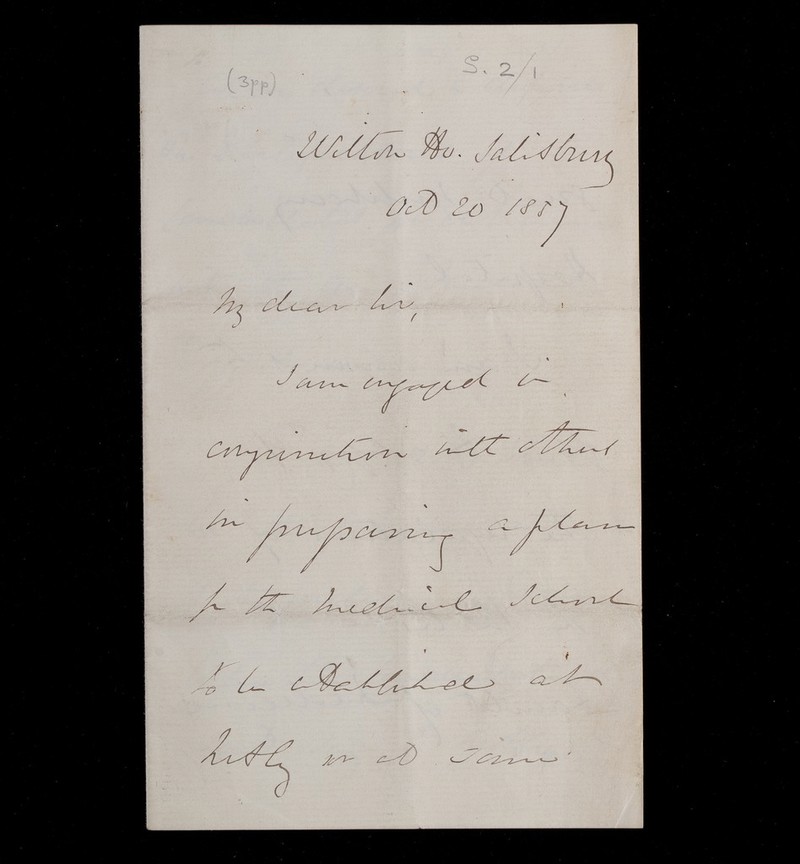 (3pp)
S. 2/1
Wilton Ho. Salisbury
Oct 20 1857
My dear Sir,
I am engaged in
conjunction with others
in preparing a plan
for the Medical School
to be established at
Netley or at some